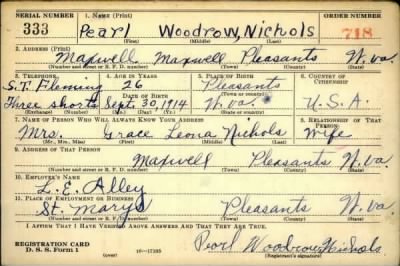 SERIAL NUMBER 1. NAME (Print) ORDER NUMBER
333 Pearl Woodrow Nichols 718
(First) (Middle) (Last)
2. ADDRESS (Print)
Maxwell Maxwell Pleasants W. Va.
(Number and street or R. F. D. number) (Town) (County) (State)
3. TELEPHONE 4. AGE IN YEARS 5. PLACE OF BIRTH 6. COUNTRY OF CITIZENSHIP
S.T. Fleming 26 Pleasants
DATE OF BIRTH (Town or county)
Three shorts Sept. 30, 1914 W. Va. U.S.A.
(Exchange) (Number) (Mo.) (Day) (Yr.) (State or country)
7. NAME OF PERSON WHO WILL ALWAYS KNOW YOUR ADDRESS 8. RELATIONSHIP OF THAT PERSON
Mrs. Grace Leona Nichols Wife
(Mr., Mrs., Miss) (First) (Middle) (Last)
9. ADDRESS OF THAT PERSON
Maxwell Pleasants W. Va.
(Number and street or R. F. D. number) (Town) (County) (State)
10. EMPLOYER'S NAME
L. E. Alley
11. PLACE OF EMPLOYMENT OR BUSINESS
St. Marys Pleasants W. Va.
(Number and street or R. F. D. number) (Town) (County) (State)
I AFFIRM THAT I HAVE VERIFIED ABOVE ANSWERS AND THAT THEY ARE TRUE.
REGISTRATION CARD
D. S. S. Form 1 (over) 16—17105 Pearl Woodrow Nichols